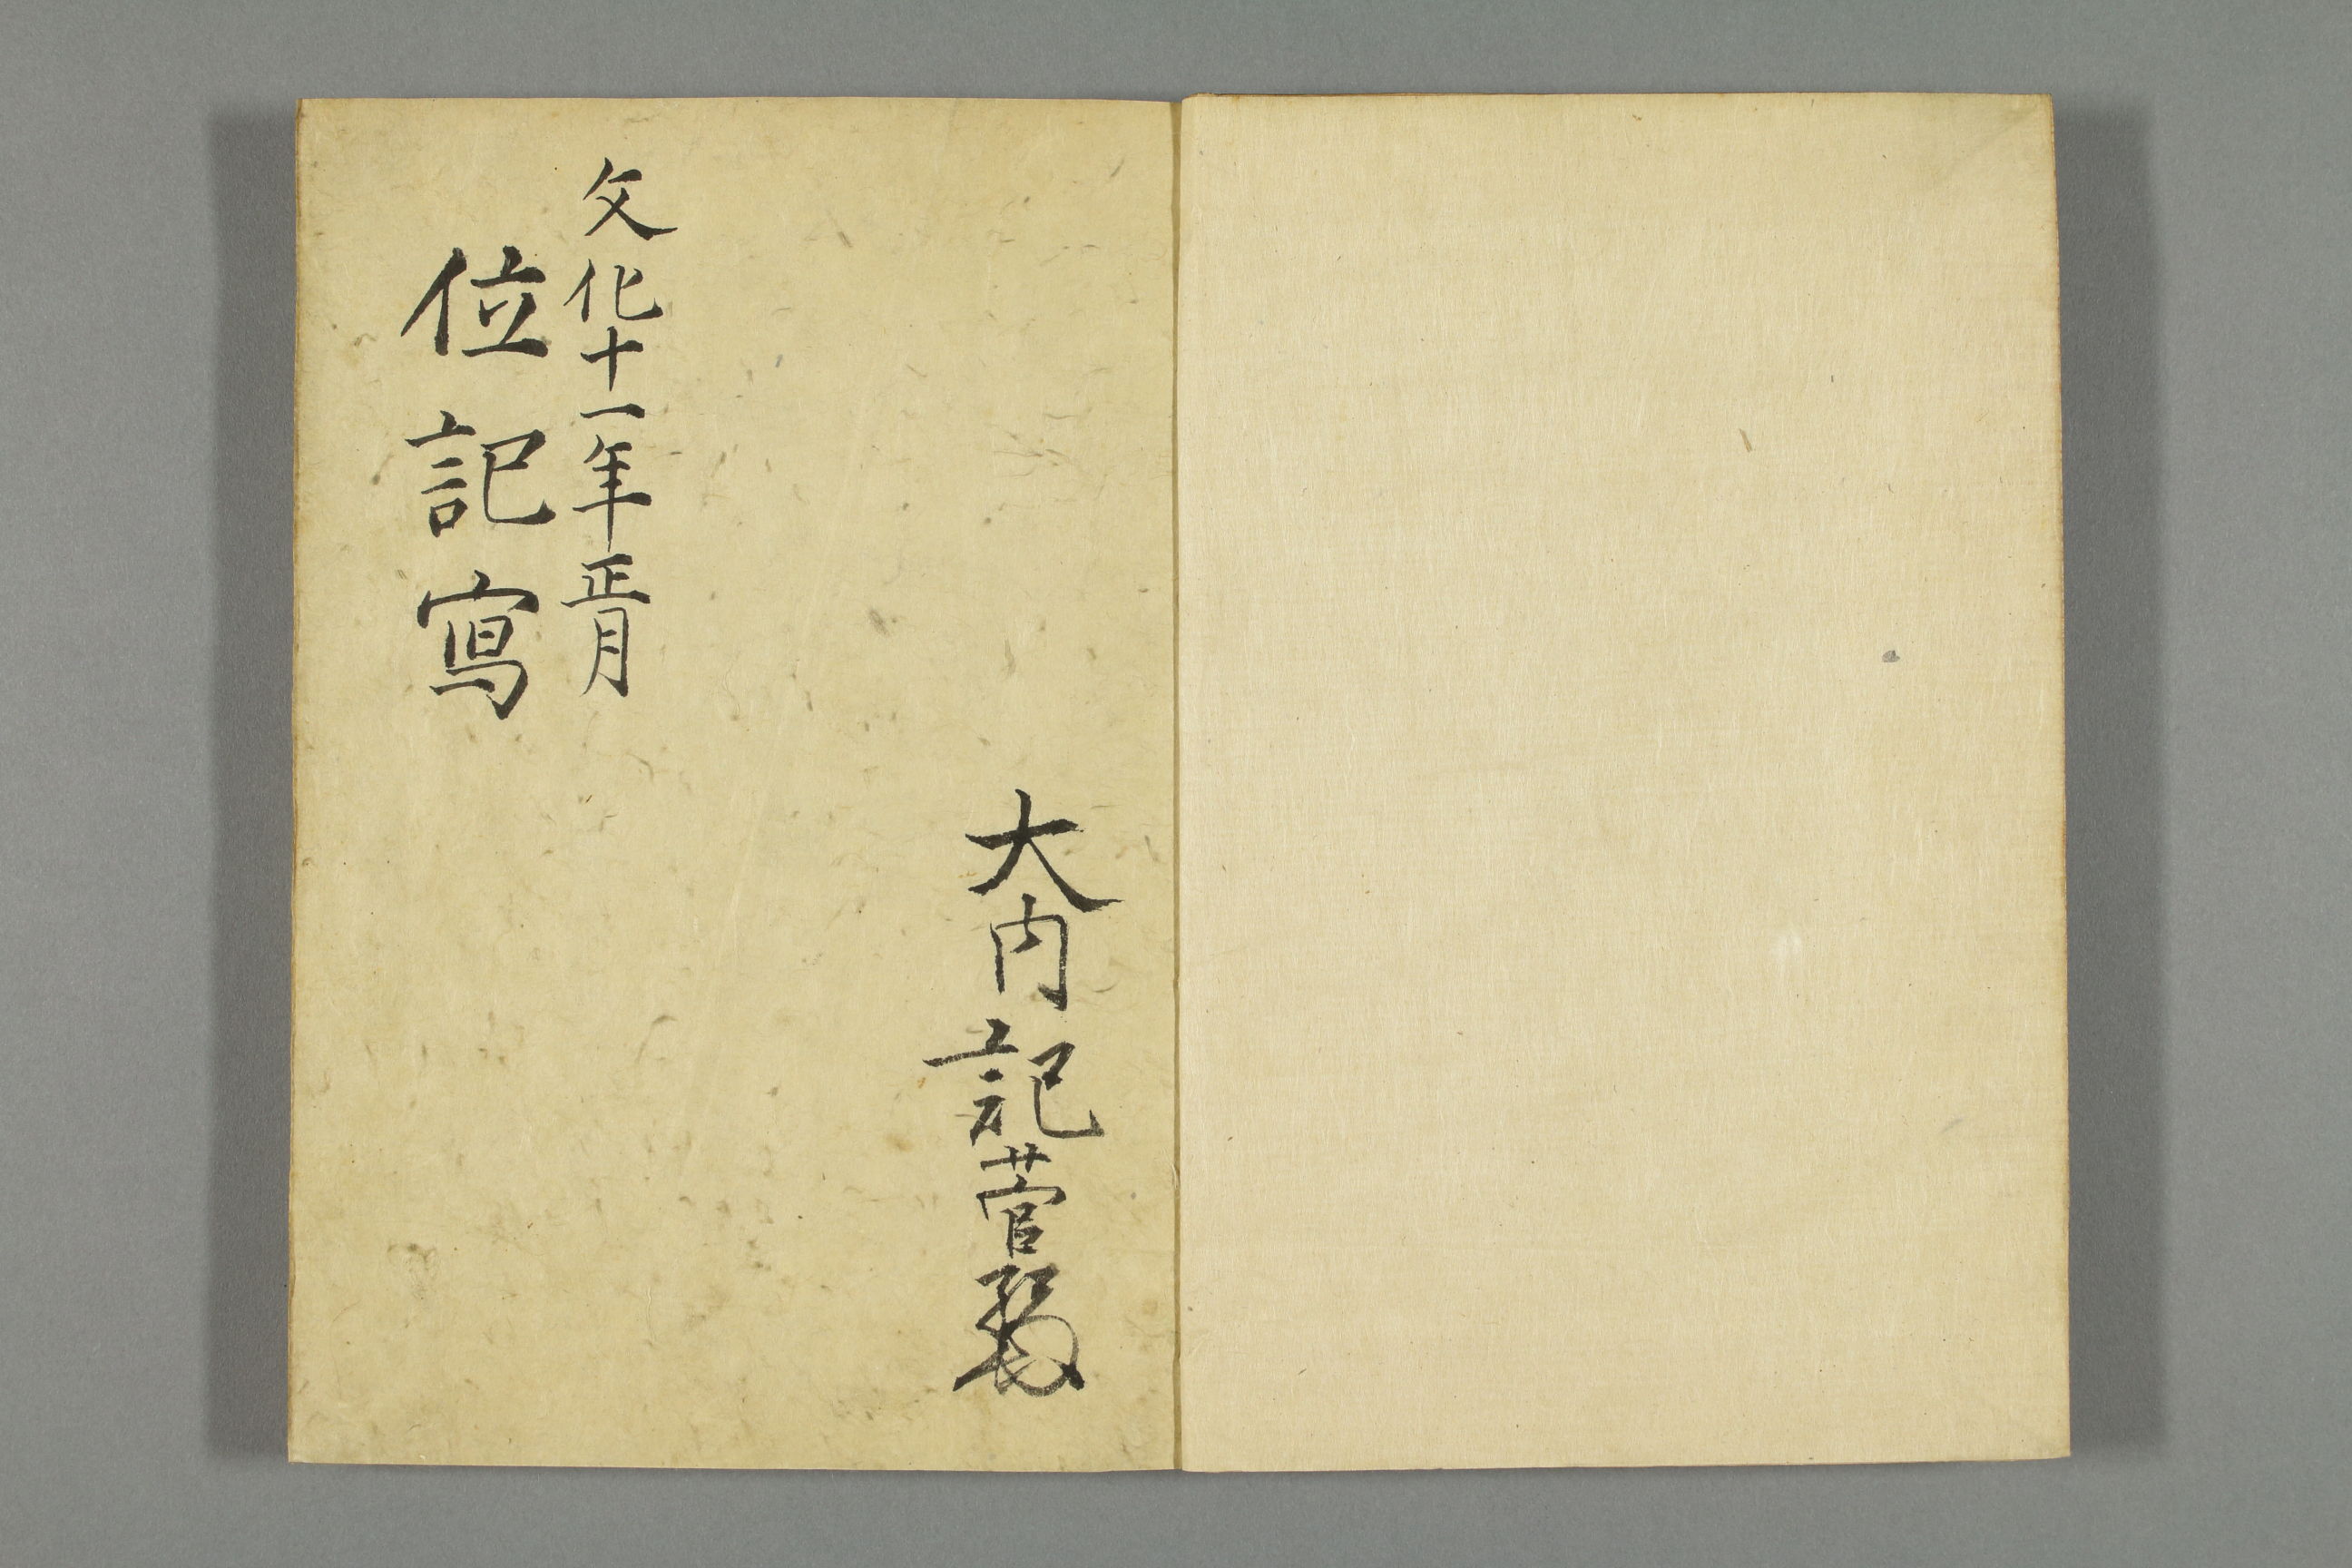 大内記菅
文化十一年正月
位記寫